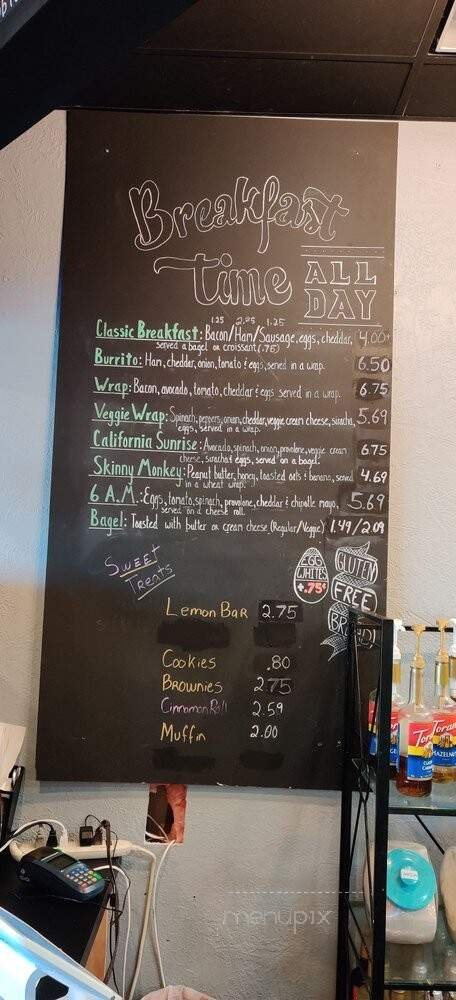 Breakfast
Time ALL DAY
1.25 2.25 1.25
Classic Breakfast: Bacon/Ham/Sausage, eggs, cheddar, 4.00+
served a bagel or croissant (.75)
Burrito: Ham, cheddar, onion, tomato & eggs, served in a wrap. 6.50
Wrap: Bacon, avocado, tomato, cheddar & eggs served in a wrap. 6.75
Veggie Wrap: Spinach, peppers, onion, cheddar, veggie cream cheese, siracha, 5.69
eggs, served in a wrap.
California Sunrise: Avocado, spinach, onion, provolone, veggie cream 6.75
cheese, siracha & eggs, served on a bagel.
Skinny Monkey: Peanut butter, honey, toasted oats & banana, served 4.69
in a wheat wrap.
6 A.M.: Eggs, tomato, spinach, provolone, cheddar & chipotle mayo, 5.69
served on a cheese roll.
Bagel: Toasted with butter or cream cheese (Regular/Veggie) 1.49/2.09
Sweet
Treats
EGG
WHITES
+.75¢
GLUTEN
FREE
BREAD!
Lemon Bar 2.75
Cookies .80
Brownies 2.75
Cinnamon Roll 2.59
Muffin 2.00
Torani
HAZELNUT
menupix